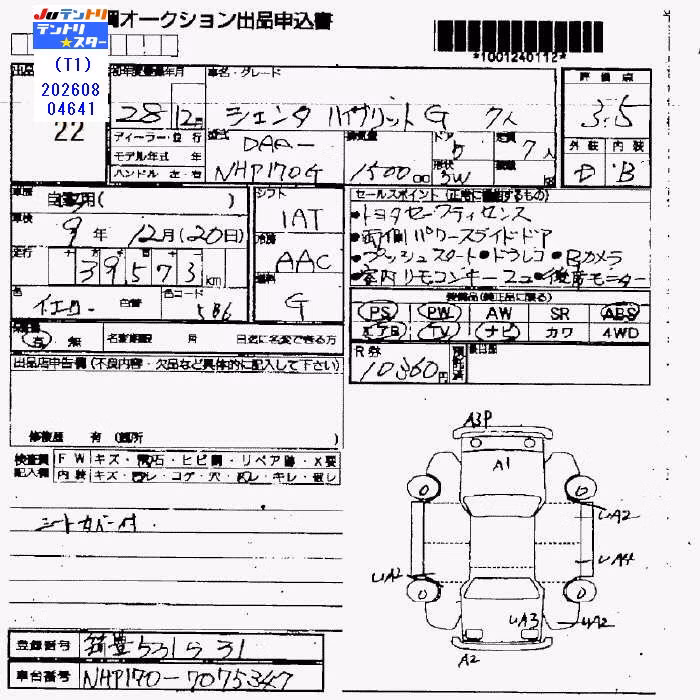 JUテントリ オークション出品申込書
テントリ
★スター
*1001240112*
(T1)
202608
04641
22
車名・グレード
28 12月 シエンタ ハイブリット G 7人
評価点
3.5
ディーラー・並行
モデル年式 年
ハンドル 左・右
型式 DAA-
NHP170G
排気量
1500
ドア 5
形状 5W
定員 7人
外装 内装
D B
車歴 自家用( )
シフト
IAT
セールスポイント(正常に機能するもの)
車検
9年 12月(20日)
・トヨタセーフティセンス
・両側パワースライドドア
冷房
AAC
・プッシュスタート・ドラレコ・Bカメラ
走行
39573km
・室内リモコンキー
・後席モニター
燃料
G
色 イエロー 色コード 5B6
装備品(純正品に限る)
PS PW AW SR ABS
エアB TV ナビ カワ 4WD
有 無 名変期限 月 日迄に名変できる方
R券
10360円
出品店申告欄(不良内容・欠品など具体的に記入して下さい)
修復歴 有(箇所 )
検査員 FW キズ・飛石・ヒビ割・リペア跡・X要
記入欄 内装 キズ・汚レ・コゲ・穴・切レ・キレ・破レ
シートカバー付
A3P
A1
A2
A4
A2
A3
A2
A2
登録番号 筑豊531ら31
車台番号 NHP170-7075347